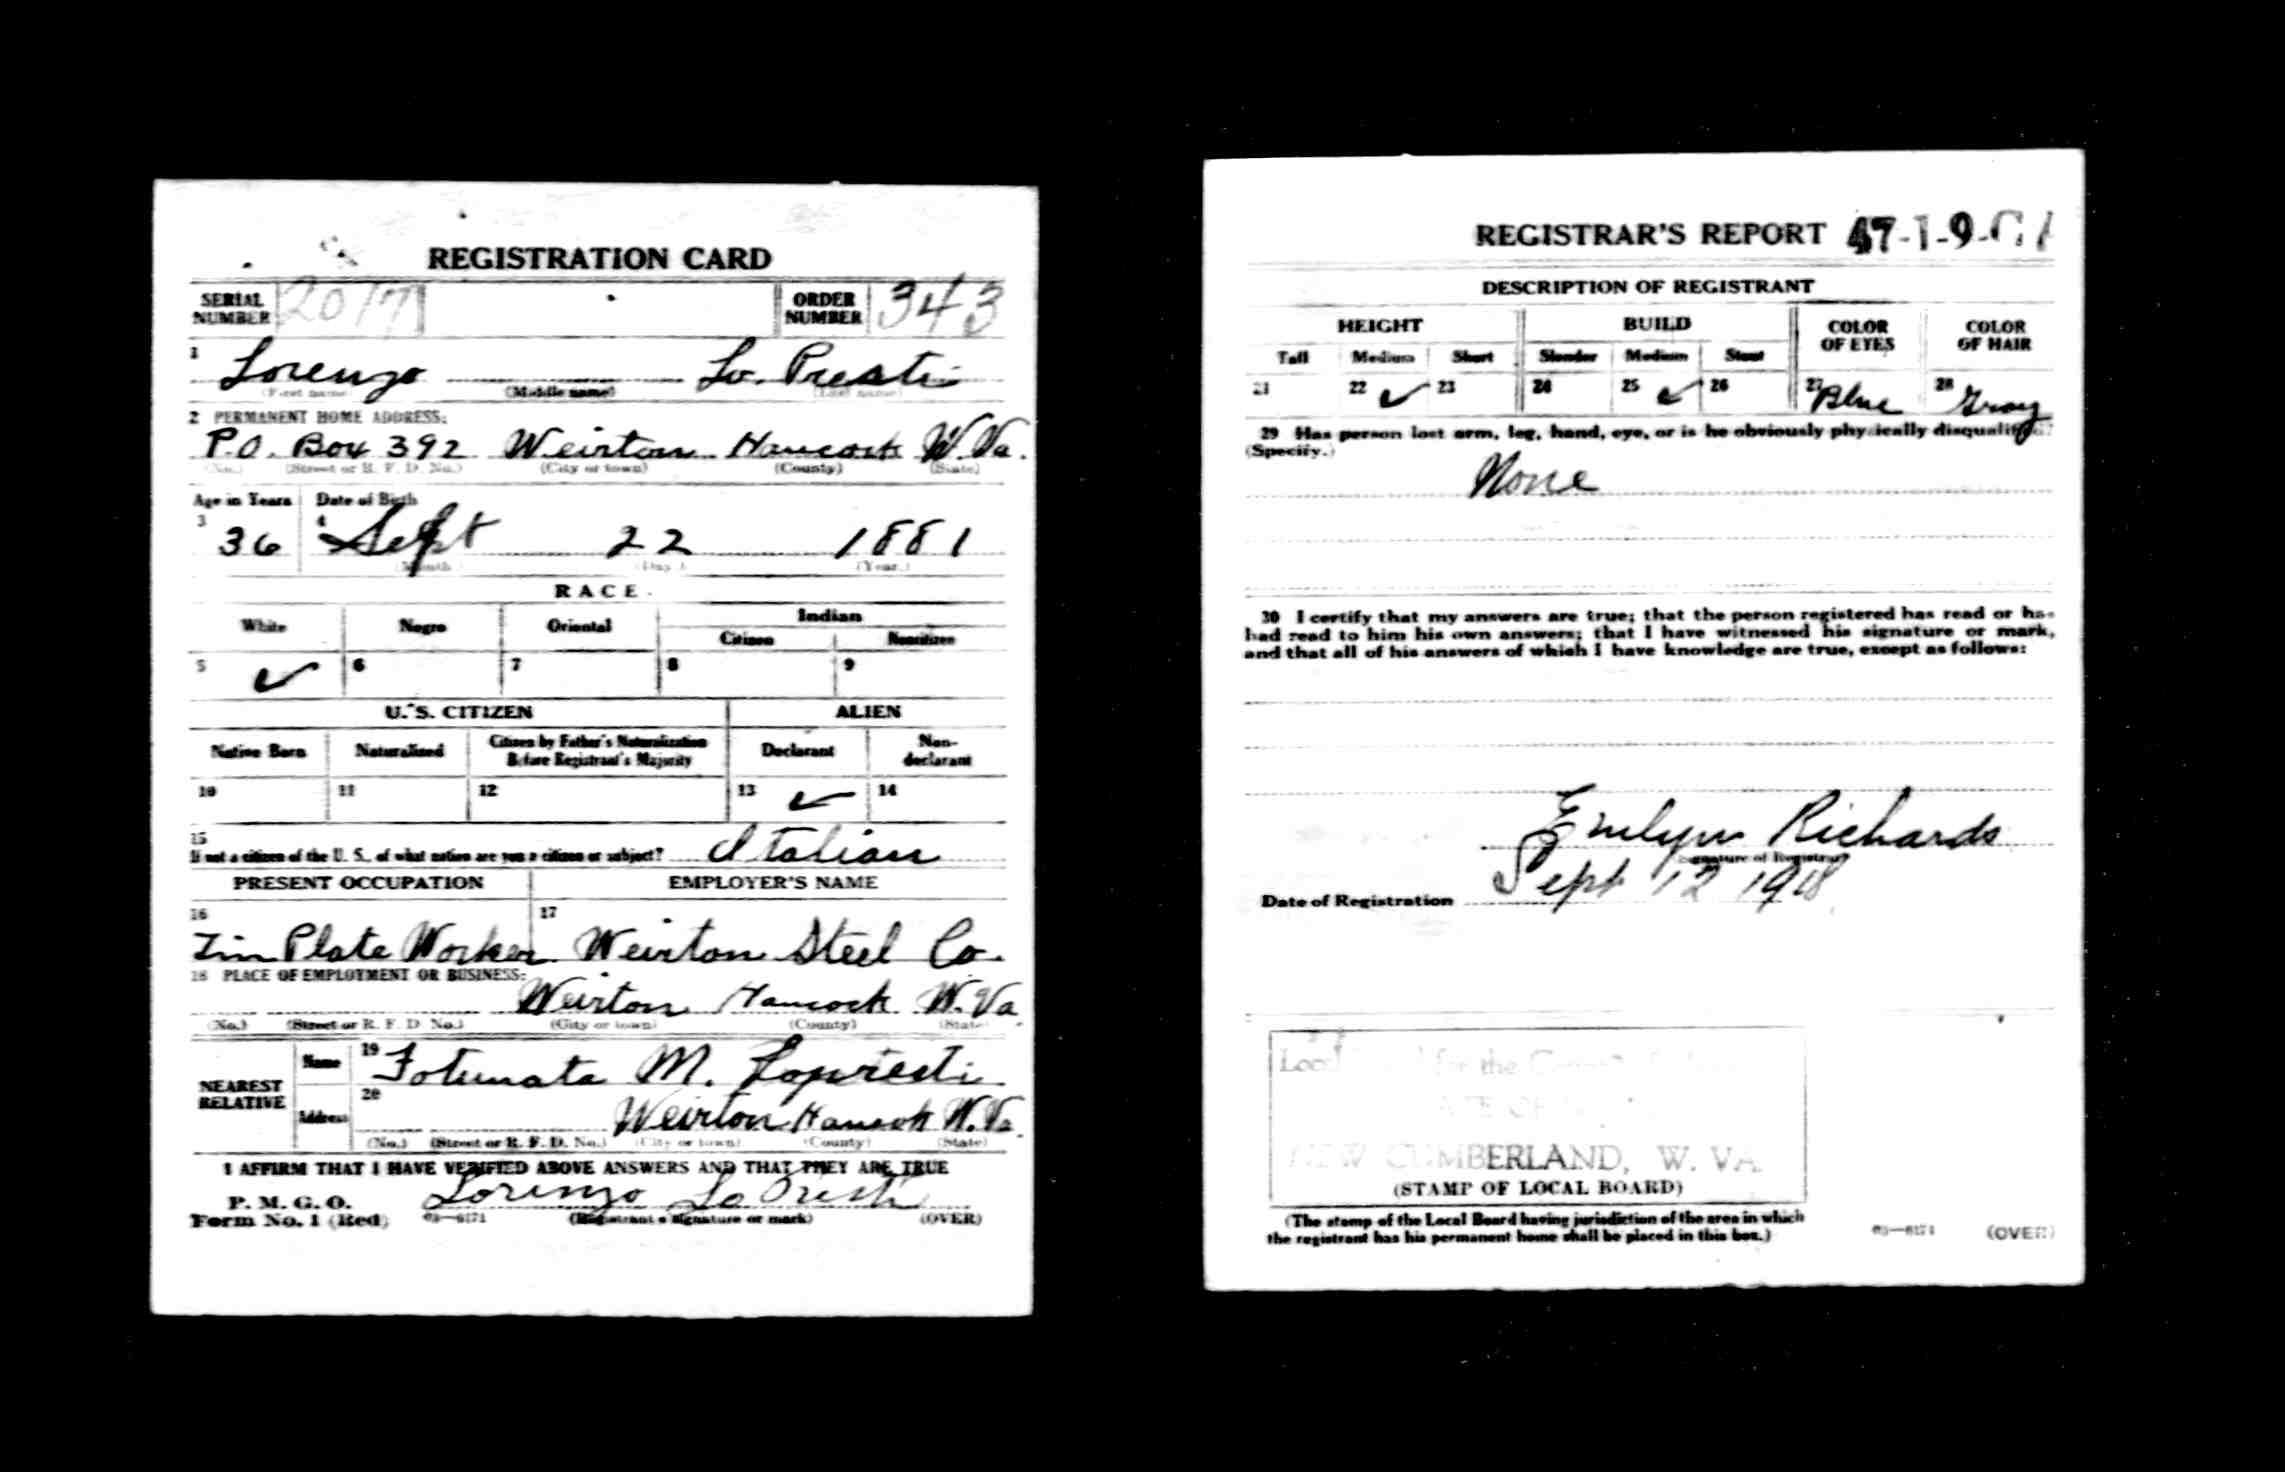 REGISTRATION CARD
SERIAL NUMBER 2017 ORDER NUMBER 343
1 Lorenzo Lo Presti
(First name) (Middle name) (Last name)
2 PERMANENT HOME ADDRESS:
P.O. Box 392 Weirton Hancock W. Va.
(No.) (Street or R. F. D. No.) (City or town) (County) (State)
Age in Years Date of Birth
3 36 4 Sept 22 1881
(Month.) (Day.) (Year.)
RACE
White Negro Oriental Indian
Citizen Noncitizen
5 ✓ 6 7 8 9
U. S. CITIZEN ALIEN
Native Born Naturalized Citizen by Father's Naturalization Before Registrant's Majority Declarant Non-declarant
10 11 12 13 ✓ 14
15
If not a citizen of the U. S., of what nation are you a citizen or subject? Italian
PRESENT OCCUPATION EMPLOYER'S NAME
16 17
Tin Plate Worker Weirton Steel Co.
18 PLACE OF EMPLOYMENT OR BUSINESS:
Weirton Hancock W. Va
(No.) (Street or R. F. D. No.) (City or town) (County) (State)
NEAREST RELATIVE
Name 19 Fotunata M. Lopresti
Address 20 Weirton Hancock W. Va.
(No.) (Street or R. F. D. No.) (City or town) (County) (State)
I AFFIRM THAT I HAVE VERIFIED ABOVE ANSWERS AND THAT THEY ARE TRUE
P. M. G. O.
Form No. 1 (Red) 03—6171 Lorenzo Lo Presti
(Registrant's signature or mark) (OVER)
REGISTRAR'S REPORT 47-1-9-
DESCRIPTION OF REGISTRANT
HEIGHT BUILD COLOR OF EYES COLOR OF HAIR
Tall Medium Short Slender Medium Stout
21 22 ✓ 23 24 25 ✓ 26 27 Blue 28 Gray
29 Has person lost arm, leg, hand, eye, or is he obviously physically disqualified?
(Specify.)
None
30 I certify that my answers are true; that the person registered has read or has
had read to him his own answers; that I have witnessed his signature or mark,
and that all of his answers of which I have knowledge are true, except as follows:
Emlyn Richards
(Signature of Registrar)
Date of Registration Sept 12 1918
Local for the
NEW CUMBERLAND, W. VA.
(STAMP OF LOCAL BOARD)
(The stamp of the Local Board having jurisdiction of the area in which
the registrant has his permanent home shall be placed in this box.)
03—6171 (OVER)